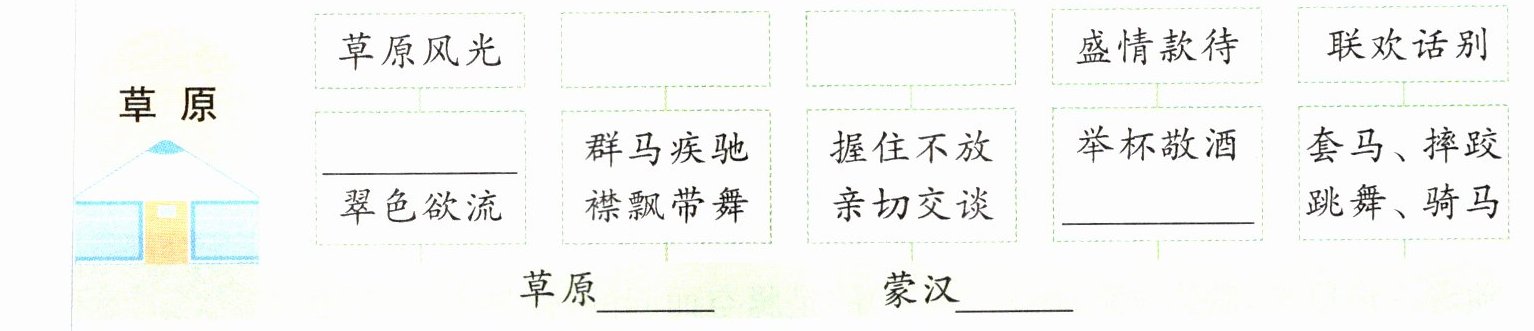 草原
草原风光
盛情款待
联欢话别
翠色欲流
群马疾驰
襟飘带舞
握住不放
亲切交谈
举杯敬酒
套马、摔跤
跳舞、骑马
草原______ 蒙汉______